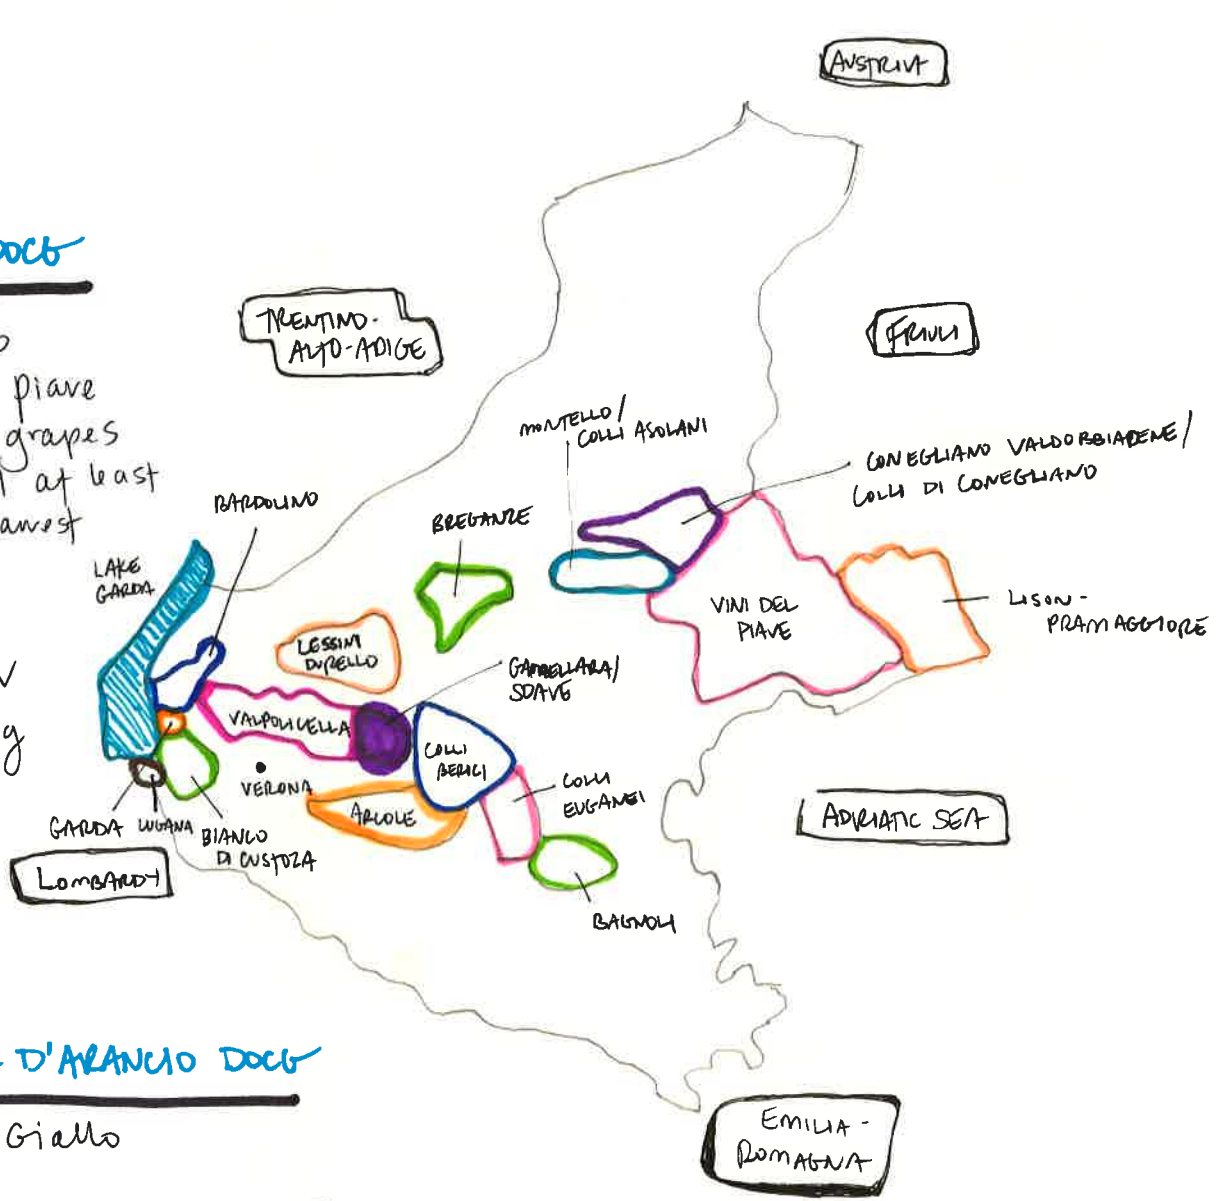 AUSTRIA
DOCG
TRENTINO-
ALTO-ADIGE
FRIULI
piave
grapes
at least
MONTELLO/
COLLI ASOLANI
CONEGLIANO VALDOBBIADENE/
COLLI DI CONEGLIANO
BARDOLINO
BREGANZE
LAKE
GARDA
VINI DEL
PIAVE
LISON-
PRAMAGGIORE
LESSINI
DURELLO
GAMBELLARA/
SOAVE
VALPOLICELLA
COLLI
BERICI
COLLI
EUGANEI
VERONA
ARCOLE
GARDA
LUGANA
BIANCO
DI CUSTOZA
LOMBARDY
ADRIATIC SEA
BAGNOLI
D'ARANCIO DOCG
Giallo
EMILIA-
ROMAGNA